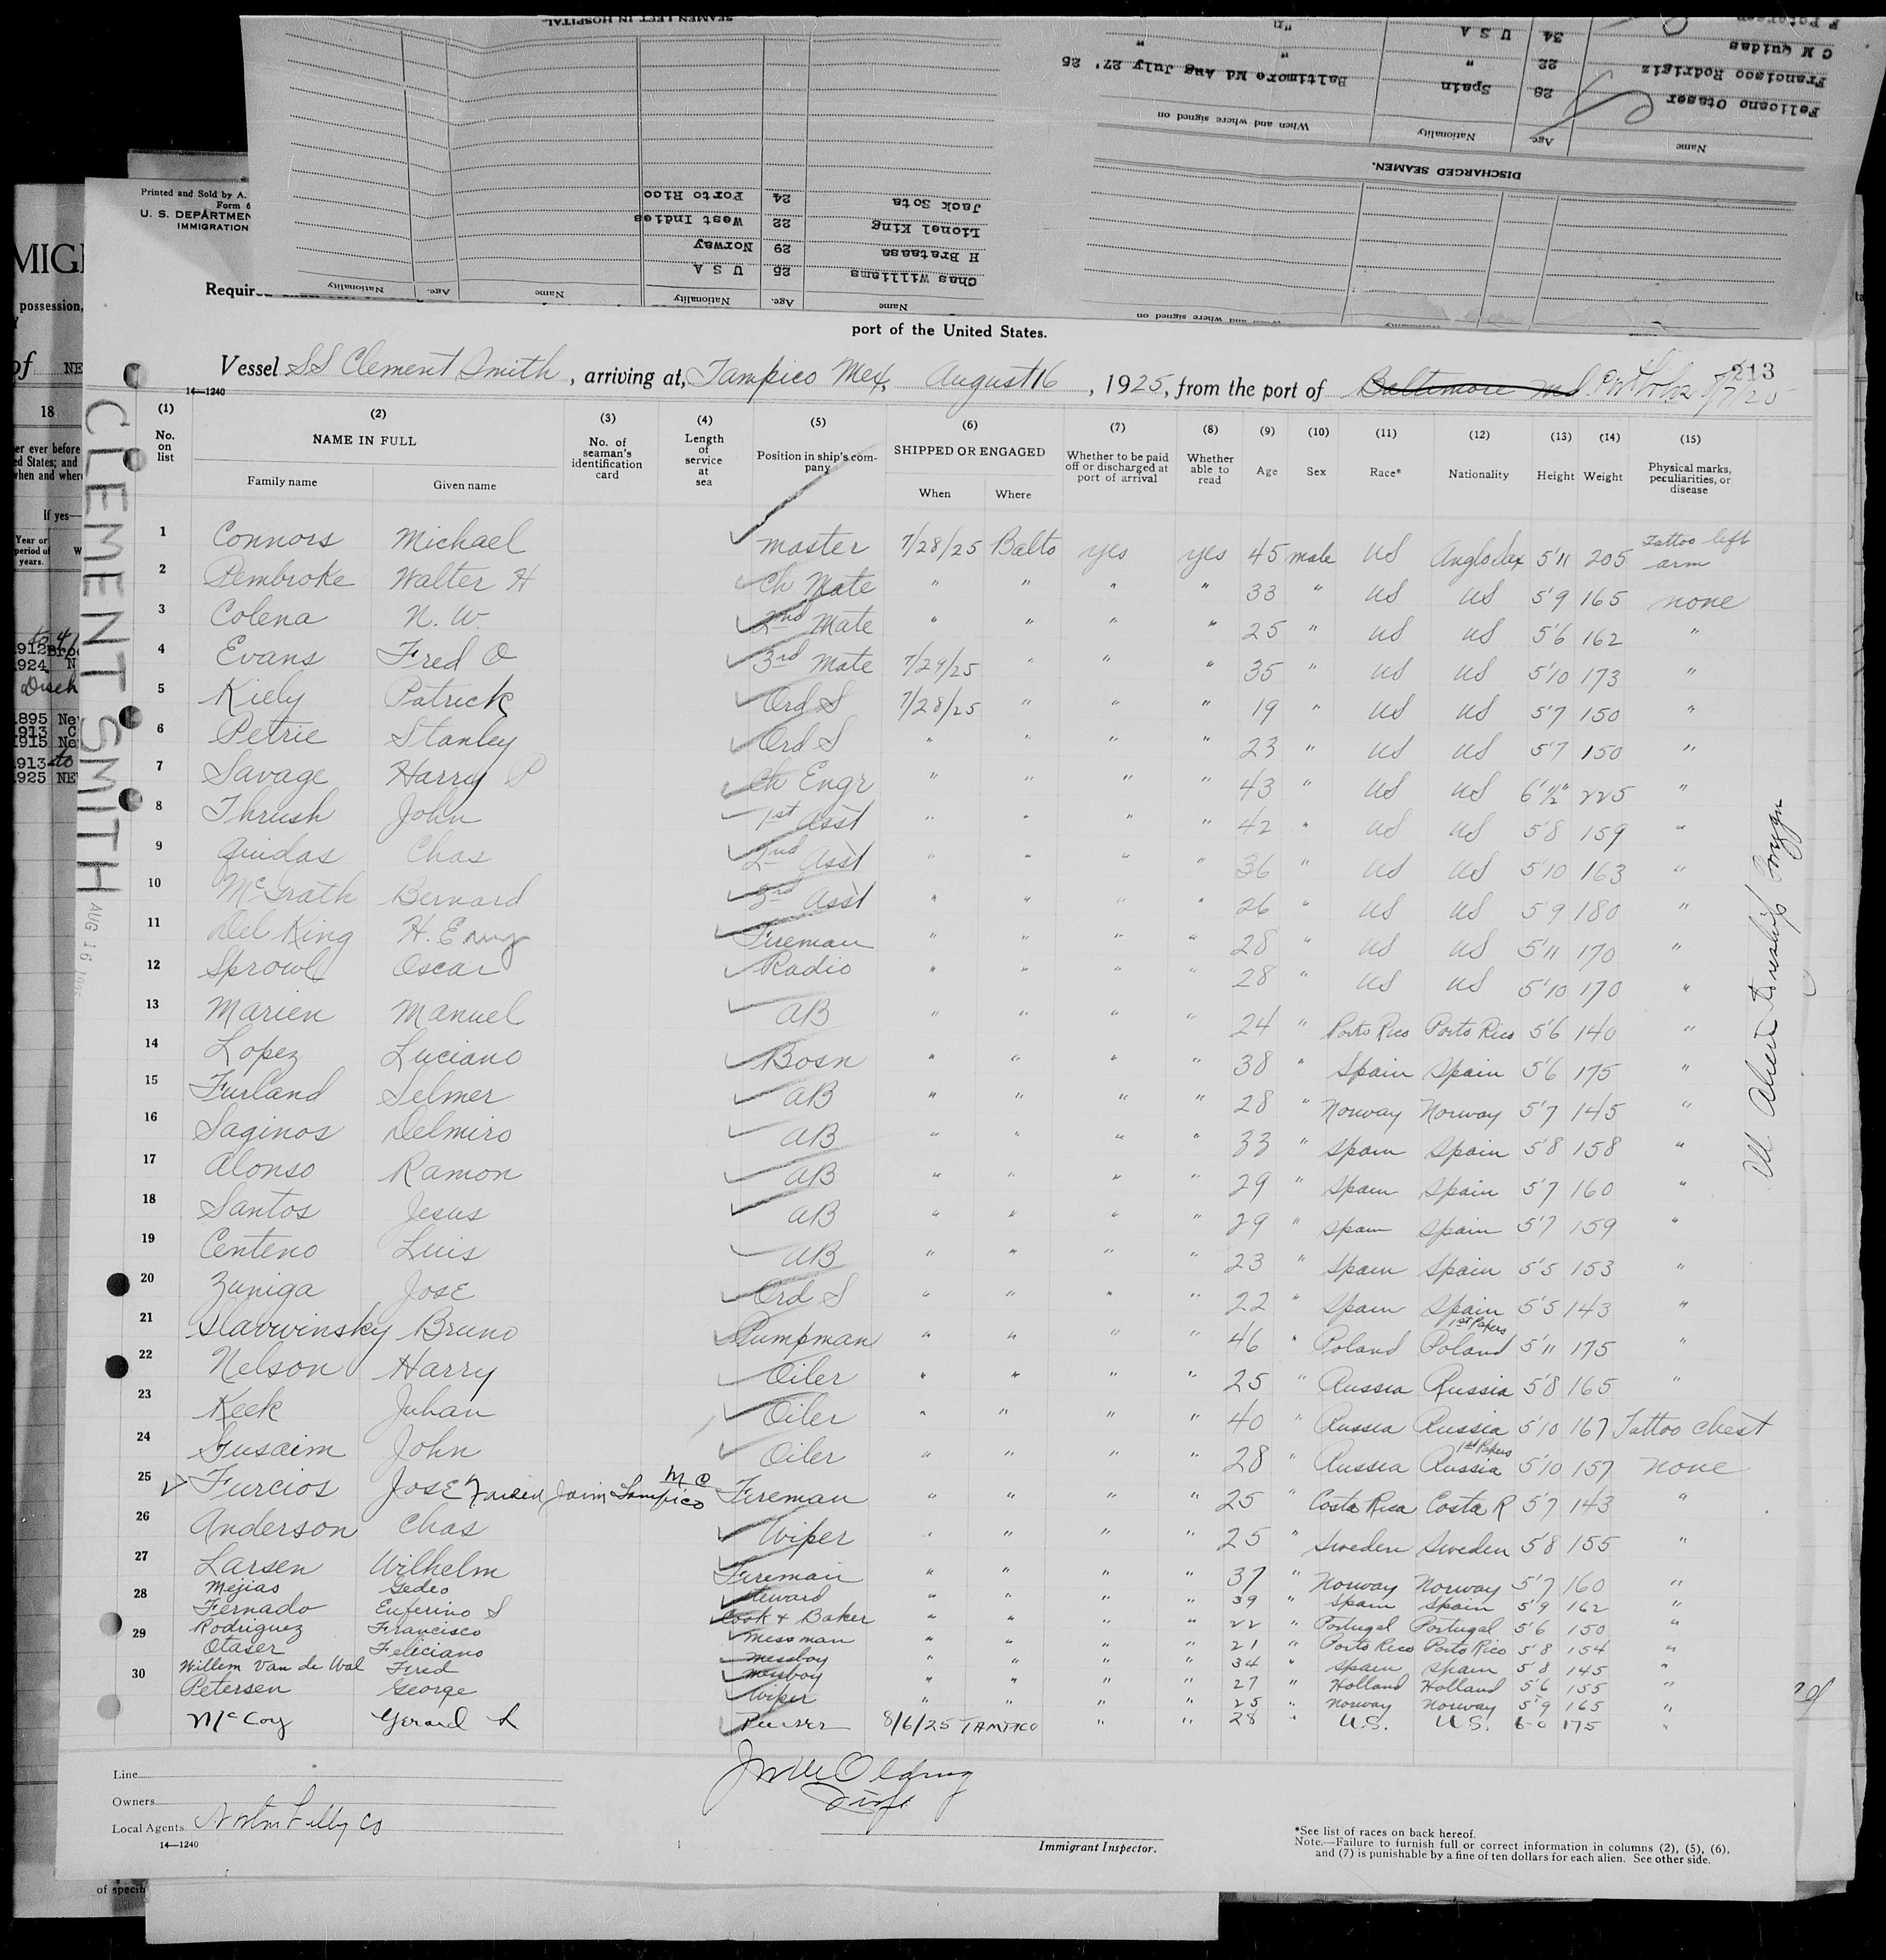 SEAMEN LEFT IN HOSPITAL
Felicano Otaser 28 Spain Baltimore Md Aug July 27' 25
Francisco Rodrigiz 22 " "
C M Quidas 34 U S A "
Name Age. Nationality When and where signed on
DISCHARGED SEAMEN.
Name Age. Nationality Name Age. Nationality
Chas Williams 25 U S A
H Brataasa 29 Norway
Lionel King 22 West Indies
Jack Sota 24 Porto Rico
Printed and Sold by A.
Form 6
U. S. DEPARTMEN
IMMIGRATION
port of the United States.
Vessel SS Clement Smith, arriving at, Tampico Mex, August 16, 1925, from the port of Baltimore Md
213
14—1240
(1) (2) (3) (4) (5) (6) (7) (8) (9) (10) (11) (12) (13) (14) (15)
No. on list
NAME IN FULL
Family name Given name
No. of seaman's identification card
Length of service at sea
Position in ship's company
SHIPPED OR ENGAGED
When Where
Whether to be paid off or discharged at port of arrival
Whether able to read
Age Sex Race* Nationality Height Weight
Physical marks, peculiarities, or disease
1 Connors Michael master 7/28/25 Balto yes yes 45 male US Anglo Sax 5'11 205 Tattoo left arm
2 Pembroke Walter H Ch Mate " " " " 33 " US US 5'9 165 none
3 Colena N. W. 2nd Mate " " " 25 " US US 5'6 162 "
4 Evans Fred O 3rd Mate 7/29/25 " " " 35 " US US 5'10 173 "
5 Kiely Patrick Ord S 7/28/25 " " " 19 " US US 5'7 150 "
6 Petrie Stanley Ord S " " " " 23 " US US 5'7 150 "
7 Savage Harry P Ch Engr " " " " 43 " US US 6'1/2" 225 "
8 Thrush John 1st Asst " " " " 42 " US US 5'8 159 "
9 Quidas Chas 2nd Asst " " " 36 " US US 5'10 163 "
10 McGrath Bernard 3rd Asst " " " " 26 " US US 5'9 180 "
11 Del King H. Fireman " " " " 28 " US US 5'11 170 "
12 Sprowl Oscar Radio " " " " 28 " US US 5'10 170 "
13 Marien Manuel AB " " " " 24 " Porto Rico Porto Rico 5'6 140 "
14 Lopez Luciano Bosn " " " " 38 " Spain Spain 5'6 175 "
15 Furland Selmer AB " " " " 28 " Norway Norway 5'7 145 "
16 Saginos Delmiro AB " " " " 33 " Spain Spain 5'8 158 "
17 Alonso Ramon AB " " " " 29 " Spain Spain 5'7 160 "
18 Santos Jesus AB " " " " 29 " Spain Spain 5'7 159 "
19 Centeno Luis AB " " " " 23 " Spain Spain 5'5 153 "
20 Zuniga Jose Ord S " " " " 22 " Spain Spain 5'5 143 "
21 Slavwinsky Bruno Pumpman " " " " 46 " Poland 1st Papers Poland 5'11 175 "
22 Nelson Harry Oiler " " " " 25 " Russia Russia 5'8 165 "
23 Keek Juhan Oiler " " " " 40 " Russia Russia 5'10 167 Tattoo chest
24 Gusaim John Oiler " " " " 28 " Russia 1st Papers Russia 5'10 157 none
25 Furcios Jose Tampico Fireman " " " " 25 " Costa Rica Costa R 5'7 143 "
26 Anderson Chas Wiper " " " " 25 " Sweden Sweden 5'8 155 "
27 Larsen Wilhelm Fireman " " " " 37 " Norway Norway 5'7 160 "
Mejias Gedeo Steward " " " " 39 " Spain Spain 5'9 162 "
28 Fernado Euferino S Cook & Baker " " " " 22 " Portugal Portugal 5'6 150 "
Rodriguez Francisco Messman " " " " 21 " Porto Rico Porto Rico 5'8 154 "
29 Otaser Feliciano messboy " " " " 34 " Spain Spain 5'8 145 "
Willem Van de Wal Fred messboy " " " " 27 " Holland Holland 5'6 155 "
30 Petersen George Wiper " " " " 25 " Norway Norway 5'9 165 "
McCoy Gerard L Purser 8/6/25 TAMPICO " " 28 " U.S. U.S. 6-0 175 "
CLEMENT SMITH
AUG 16
Line
Owners
Local Agents Norton Lilly Co
14—1240
Immigrant Inspector.
*See list of races on back hereof.
Note.—Failure to furnish full or correct information in columns (2), (5), (6),
and (7) is punishable by a fine of ten dollars for each alien. See other side.